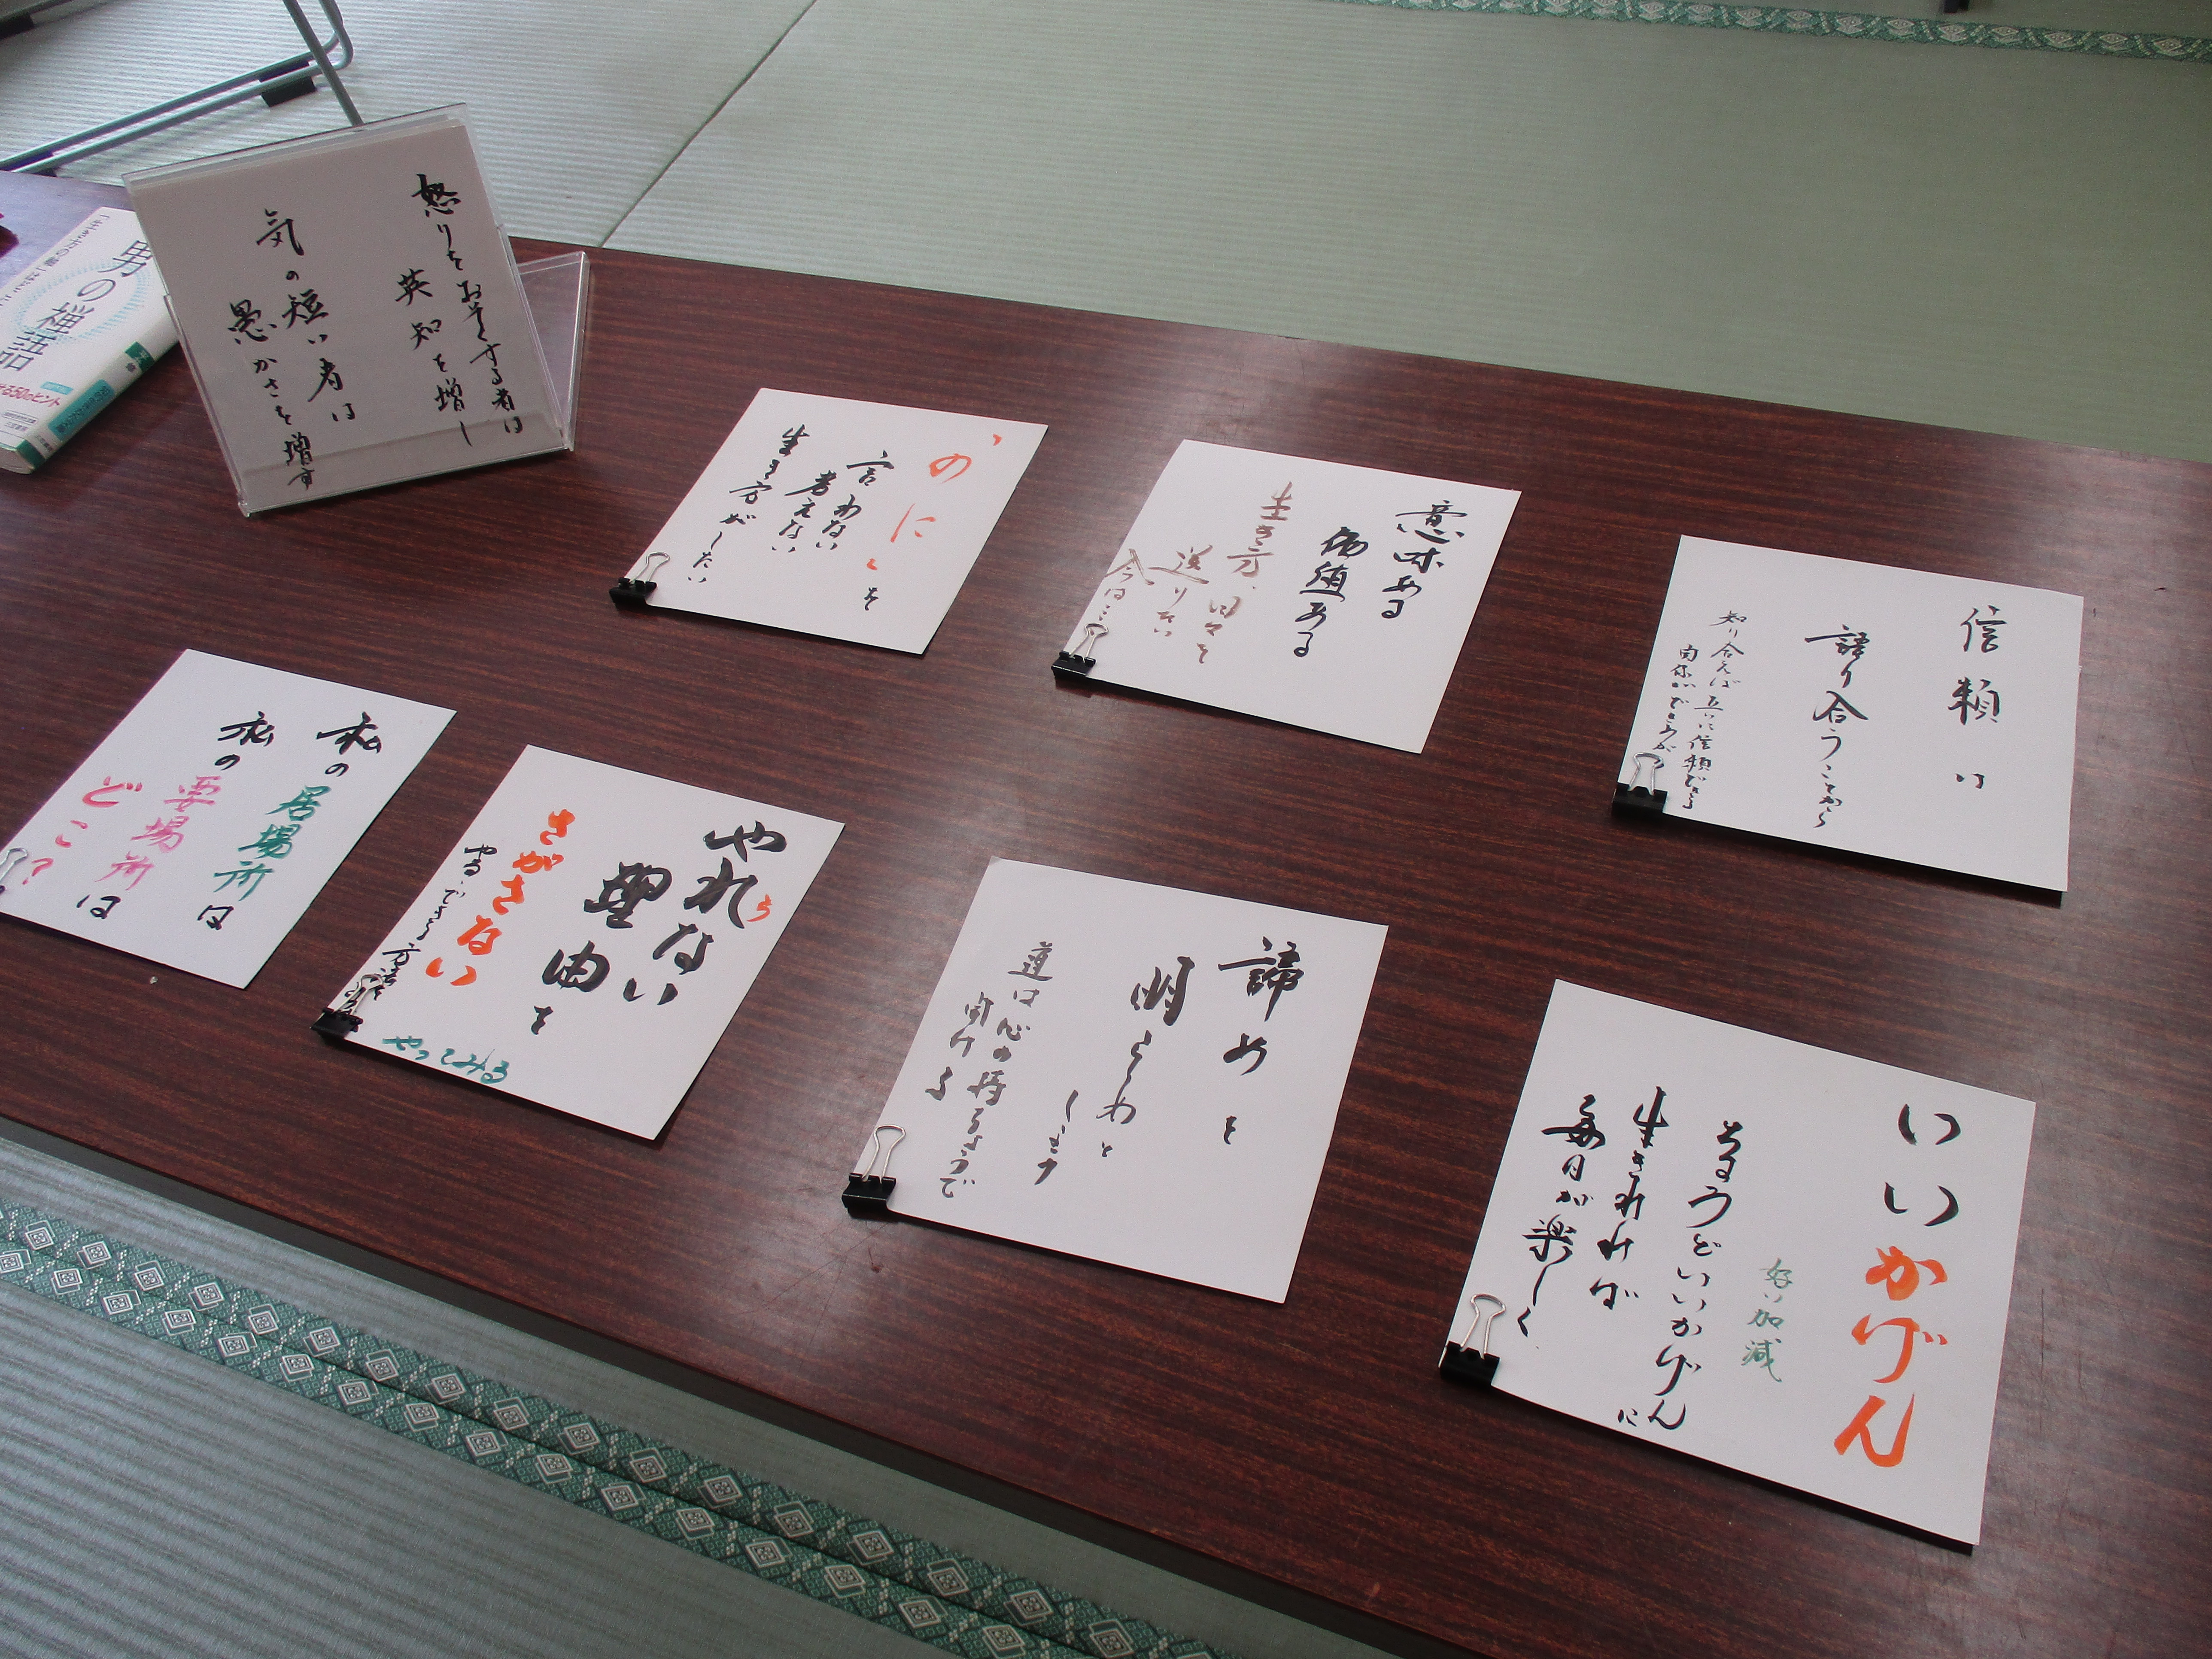 怒りをおそくする者は
英知を増し
気の短い者は
愚かさを増す
男の禅語
、のに、を
言わない
考えない
生き方がしたい
意味ある
価値ある
生き方、日々を
送りたい
今は…
信頼は
語り合うことから
知り合えば互いに信頼できる
関係ができるが
私の居場所は
私の要場所は
どこ?
やれない
ら
理由を
さがさない
やる・できる方法を
やってみる
諦めを
明らわと
道は心の持ちようで
開ける
いいかげん
好い加減
ちょうどいいかげんに
生きれれば
毎日が楽しく